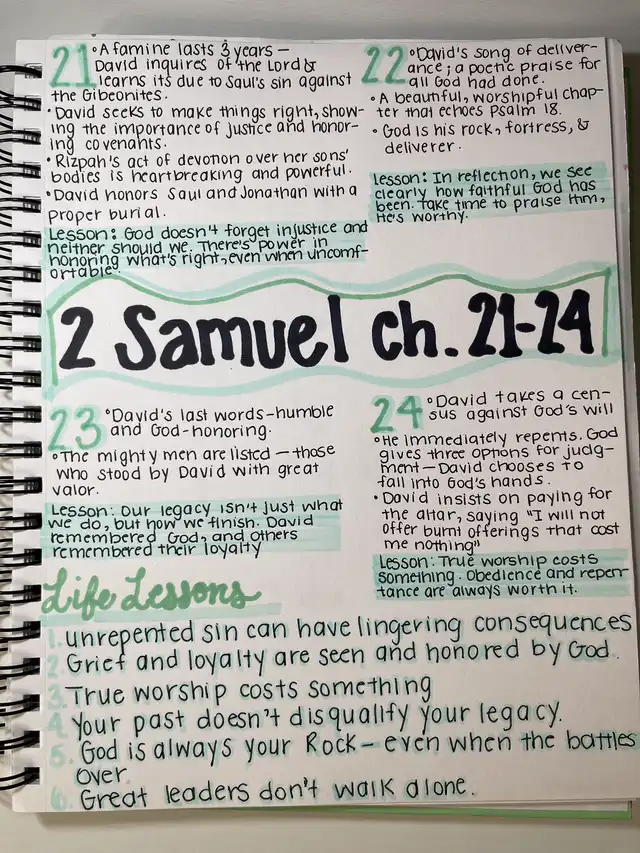 21
°A famine lasts 3 years —
David inquires of the Lord &
learns its due to Saul's sin against
the Gibeonites.
•David seeks to make things right, show-
ing the importance of justice and honor-
ing covenants.
•Rizpah's act of devotion over her sons'
bodies is heartbreaking and powerful.
•David honors Saul and Jonathan with a
proper burial.
Lesson: God doesn't forget injustice and
neither should we. There's power in
honoring what's right, even when uncomf-
ortable.
22
°David's song of deliver-
ance; a poetic praise for
all God had done.
•A beautful, worshipful chap-
ter that echoes Psalm 18.
•God is his rock, fortress, &
deliverer.
Lesson: In reflection, we see
clearly how faithful God has
been. Take time to praise Him,
He's worthy.
2 Samuel ch. 21-24
23
°David's last words-humble
and God-honoring.
°The mighty men are listed — those
who stood by David with great
valor.
Lesson: Our legacy isn't just what
we do, but how we finish. David
remembered God, and others
remembered their loyalty
24
°David takes a cen-
sus against God's will
°He immediately repents. God
gives three options for judg-
ment — David chooses to
fall into God's hands.
•David insists on paying for
the altar, saying "I will not
offer burnt offerings that cost
me nothing"
Lesson: True worship costs
something. Obedience and repen-
tance are always worth it.
Life Lessons
1. unrepented sin can have lingering consequences
2. Grief and loyalty are seen and honored by God.
3. True worship costs something
4. Your past doesn't disqualify your legacy.
5. God is always your Rock - even when the battles
over.
6. Great leaders don't walk alone.